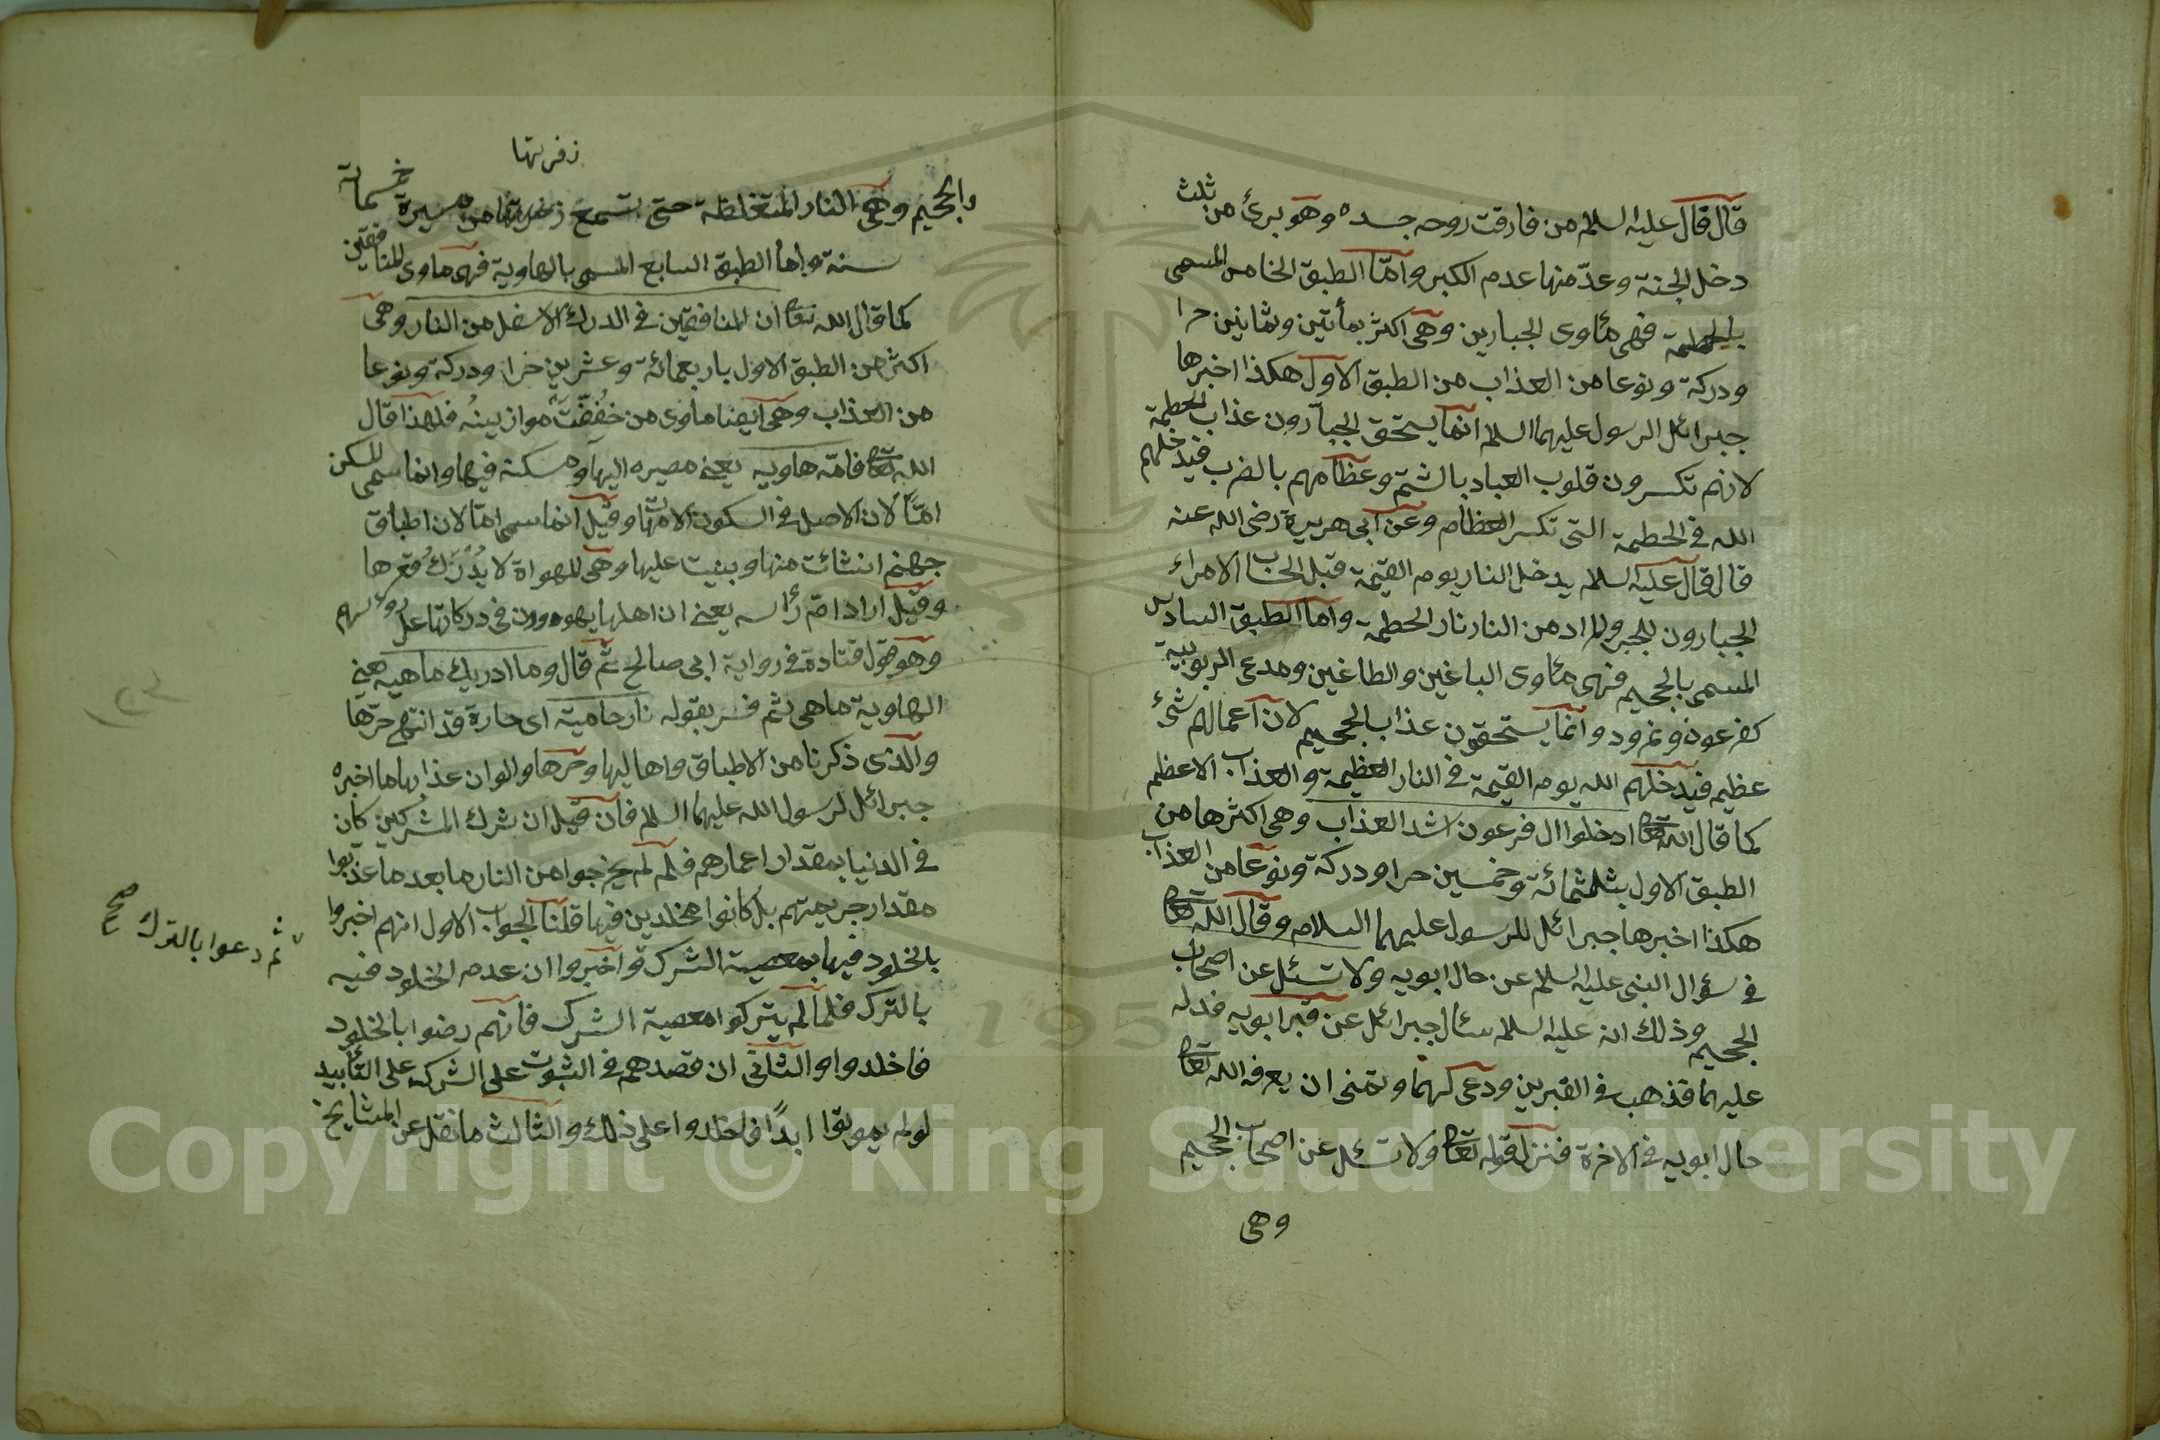 قال قال عليه السلام من فارقت روحه جسده وهو برئ من ثلث
دخل الجنة وعدّ منها عدم الكبر وامّا الطبق الخامس المسمى
بالحطمة فهى مأوى الجبارين وهى اكثر بمأتين وثمانين حرا
ودركة ونوعا من العذاب من الطبق الاول هكذا اخبرها
جبرائل الرسول عليهما السلام انما يستحق الجبّارون عذاب الحطمة
لانهم تكسرون قلوب العباد بالشتم وعظامهم بالضرب فيدخلهم
الله فى الحطمة التى تكسر العظام وعن ابى هريرة رضى الله عنه
قال قال عليه السلام يدخل النار يوم القيمة قبل الحساب الامراء
الجبارون للجبر والمراد من النار نار الحطمة واما الطبق السادس
المسمى بالجحيم فهى مأوى الباغين والطاغين ومدعى الربوبية
كفرعون ونمرود وانما يستحقون عذاب الجحيم لان اعمالهم شئ
عظيم فيدخلهم الله يوم القيمة فى النار العظيمة والعذاب الاعظم
كما قال الله تعا ادخلوا ال فرعون اشد العذاب وهى اكثرها من
الطبق الاول بثلثمائة وخمسين حرا ودركة ونوعا من العذاب
هكذا اخبرها جبرائل للرسول عليهما السلام وقال الله تعا
فى سؤال النبى عليه السلام عن حال ابويه ولا تسئل عن اصحاب
الجحيم وذلك انه عليه السلام سئال جبرائل عن قبر ابويه فدله
عليهما فذهب فى القبرين ودعى لهما وتمنى ان يعرفه الله تعا
حال ابويه فى الاخرة فنزل قوله تعا ولا تسئل عن اصحاب الجحيم
وهى
زفرتها
والجحيم وهى النار المتغلظة حتى تسمع زفرتها من مسيرة خمسمائة
سنة واما الطبق السابع المسمى بالهاوية فهى مأوى للمنافقين
كما قال الله تعا ان المنافقين فى الدرك الاسفل من النار وهى
اكثر من الطبق الاول باربعمائة وعشرين حرا ودركة ونوعا
من العذاب وهى ايضا مأوى من خُفِّفَتْ موازينُه فلهذا قال
الله تعا فامّه هاويه يعنى مصيره اليها ومسكنه فيها وانما سمى للمسكن
امّاً لان الاصل فى السكون الامهات وقيل انما سمى امّا لان اطباق
جهنم انشئت منها وبنيت عليها وهى المهواة لا يُدْرَكُ قعرها
وقيل اراد امّ رأسه يعنى ان اهلها يهوون فى دركاتها على رؤسهم
وهو قول قتادة فى رواية ابى صالح ثم قال وما ادريك ماهيه يعنى
الهاوية ماهى ثم فسر بقوله نار حامية اى حارة قد انتهى حرّها
والذى ذكرنا من الاطباق واهاليها وحرها والوان عذابها ما اخبره
جبرائل لرسول الله عليهما السلام فان قيل ان شرك المشركين كان
فى الدنيا بمقدار اعمارهم فلم لم يخرجوا من النار ما بعد ما عذبوا
مقدار جريمتهم بل كانوا مخلدين فيها قلنا الجواب الاول انهم اخبروا
بالخلود فيها بمعصية الشرك واخبروا ان عدم الخلود فيه
بالترك فلما لم يتركوا معصية الشرك فانهم رضوا بالخلود
فاخلدوا والثانى ان قصدهم فى الثبوت على الشرك على التأبيد
لو لم يموتوا ابدًا فاخلدوا على ذلك والثالث ما نقل عن المشايخ
ثم دعوا بالترك صح
Copyright © King Saud University
195